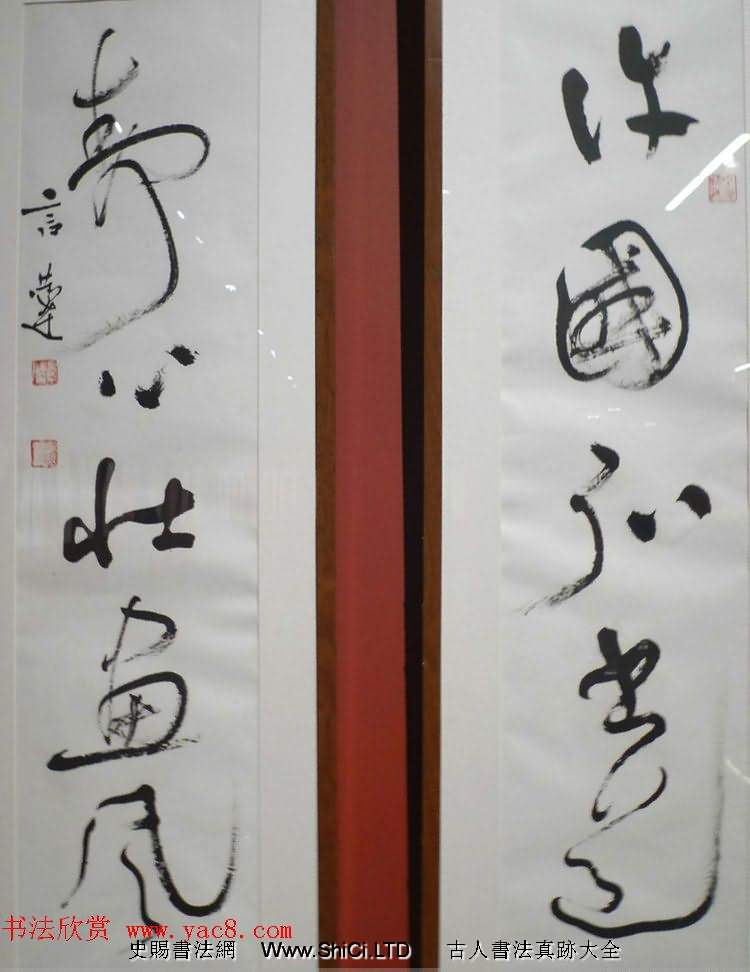 許國弘書道
壽公壯畫風
言蓮
书法欣赏 www.yac8.com
史賜書法網 Www.ShiCi.LTD 古人書法真跡大全